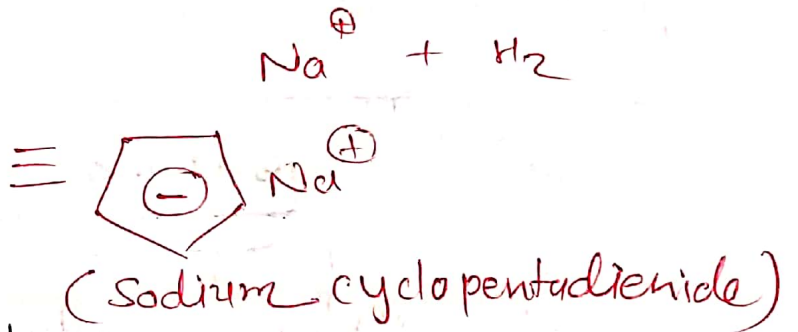 Na⊕ + H2
≡ ⊖ Na⊕
(sodium cyclopentadienide)